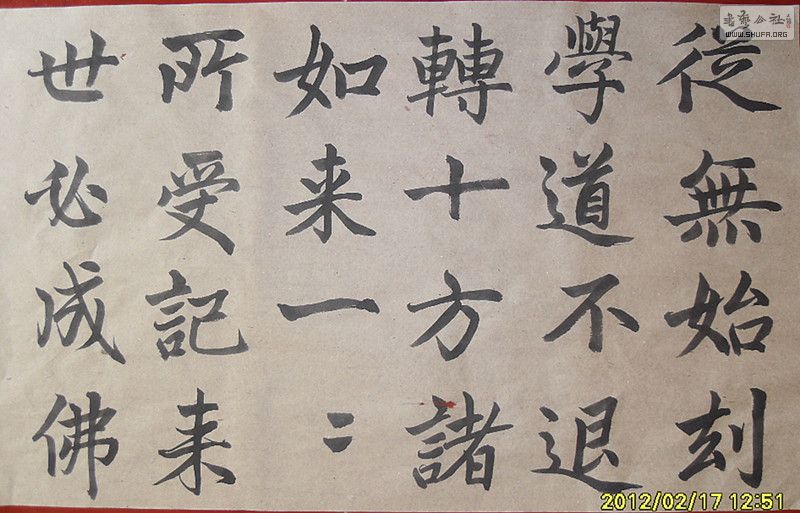 從無始刻
學道不退
轉十方諸
如来一〻
所受記来
世必成佛
書法公社
WWW.SHUFA.ORG
2012/02/17 12:51